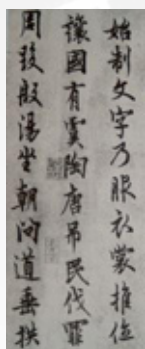 始制文字乃服衣裳推位
讓國有虞陶唐吊民伐罪
周發殷湯坐朝問道垂拱